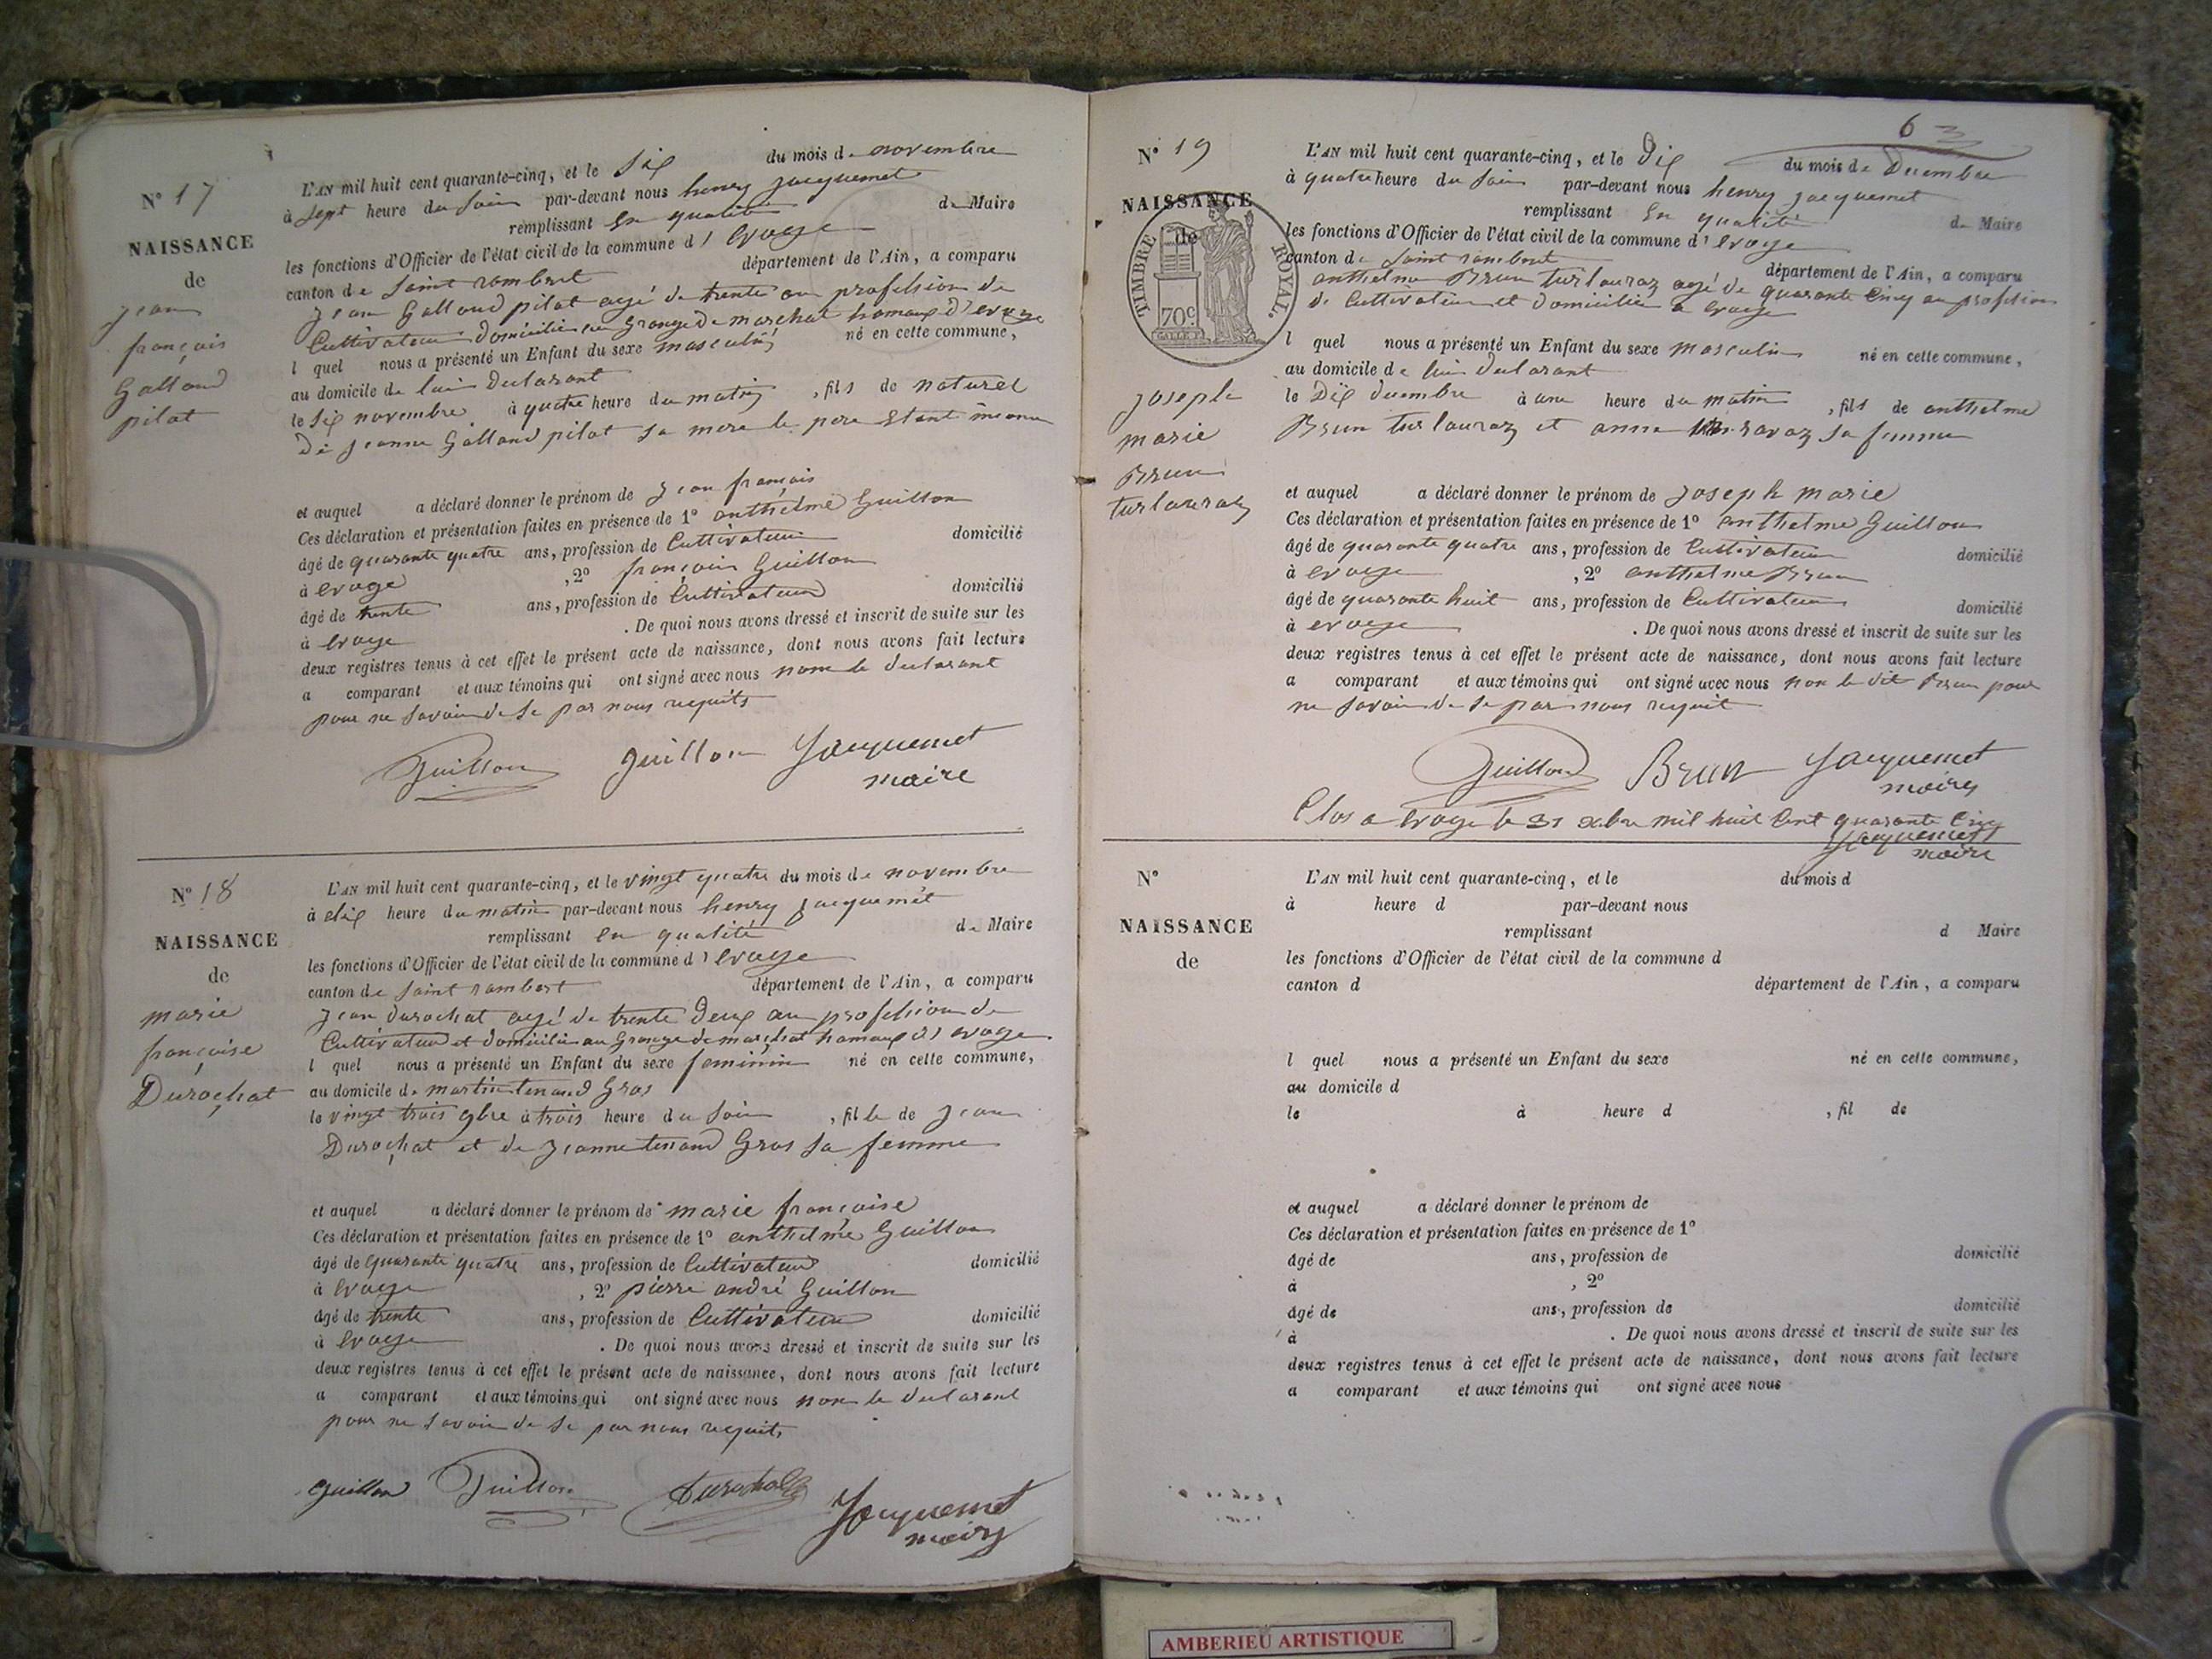 N° 17
NAISSANCE
de
jean
françois
Galland
pilat
L'AN mil huit cent quarante-cinq, et le Six du mois de novembre
à Sept heure du Soir par-devant nous henry jacquemet
remplissant En qualité de Maire
les fonctions d'Officier de l'état civil de la commune d'Evoge
canton de Saint rambert département de l'Ain, a comparu
jean Galland pilat agé de trente an profession de
Cultivateur domicilié en Grange de marchat hamaux d'evoge
l quel nous a présenté un Enfant du sexe masculin né en cette commune,
au domicile de lui declarant
le Six novembre à quatre heure du matin, fils de naturel
De jeanne Galland pilat Sa mere le pere Etant inconnu
et auquel a déclaré donner le prénom de jean françois
Ces déclaration et présentation faites en présence de 1° anthelme Guillon
âgé de quarante quatre ans, profession de Cultivateur domicilié
à evoge , 2° françois Guillon
âgé de trente ans, profession de Cultivateur domicilié
à Evoge . De quoi nous avons dressé et inscrit de suite sur les
deux registres tenus à cet effet le présent acte de naissance, dont nous avons fait lecture
a comparant et aux témoins qui ont signé avec nous non le declarant
pour ne Savoir de Se par nous requits
Guillon Guillon Jacquemet
maire
N° 18
NAISSANCE
de
marie
françoise
Durochat
L'AN mil huit cent quarante-cinq, et le vingt quatre du mois de novembre
à dix heure du matin par-devant nous henry jacquemet
remplissant en qualité de Maire
les fonctions d'Officier de l'état civil de la commune d'Evoge
canton de Saint rambert département de l'Ain, a comparu
jean durochat agé de trente Deux an profession de
Cultivateur et domicilié au Grange de marchat hamaux d'evoge
l quel nous a présenté un Enfant du sexe feminin né en cette commune,
au domicile de martin tenand Gras
le vingt trois 9bre à trois heure du Soir , fille de jean
Durochat et de jeanne tenand Gras Sa femme
et auquel a déclaré donner le prénom de marie françoise
Ces déclaration et présentation faites en présence de 1° anthelme Guillon
âgé de quarante quatre ans, profession de Cultivateur domicilié
à Evoge , 2° pierre andré Guillon
âgé de trente ans, profession de Cultivateur domicilié
à Evoge . De quoi nous avons dressé et inscrit de suite sur les
deux registres tenus à cet effet le présent acte de naissance, dont nous avons fait lecture
a comparant et aux témoins qui ont signé avec nous non le declarant
pour ne Savoir de Se par nous requits
Guillon Guillon Durochat Jacquemet
maire
6
N° 19
NAISSANCE
de
TIMBRE ROYAL.
70c
joseph
marie
Brun
turlauraz
L'AN mil huit cent quarante-cinq, et le Dix du mois de Decembre
à quatre heure du Soir par-devant nous henry jacquemet
remplissant En qualité de Maire
les fonctions d'Officier de l'état civil de la commune d'Evoge
canton de Saint rambert département de l'Ain, a comparu
anthelme Brun turlauraz agé de quarante Cinq an profession
de Cultivateur et domicilié a Evoge
l quel nous a présenté un Enfant du sexe masculin né en cette commune,
au domicile de lui declarant
le Dix decembre à une heure du matin , fils de anthelme
Brun turlauraz et anne ravaz Sa femme
et auquel a déclaré donner le prénom de joseph marie
Ces déclaration et présentation faites en présence de 1° anthelme Guillon
âgé de quarante quatre ans, profession de Cultivateur domicilié
à evoge , 2° anthelme Brun
âgé de quarante huit ans, profession de Cultivateur domicilié
à evoge . De quoi nous avons dressé et inscrit de suite sur les
deux registres tenus à cet effet le présent acte de naissance, dont nous avons fait lecture
a comparant et aux témoins qui ont signé avec nous non le dit Brun pour
ne Savoir de Se par nous requit
Guillon Brun Jacquemet
maire
Clos a Evoge le 31 xbre mil huit Cent quarante Cinq
Jacquemet
maire
N°
NAISSANCE
de
L'AN mil huit cent quarante-cinq, et le du mois d
à heure d par-devant nous
remplissant d Maire
les fonctions d'Officier de l'état civil de la commune d
canton d département de l'Ain, a comparu
l quel nous a présenté un Enfant du sexe né en cette commune,
au domicile d
le à heure d , fil de
et auquel a déclaré donner le prénom de
Ces déclaration et présentation faites en présence de 1°
âgé de ans, profession de domicilié
à , 2°
âgé de ans, profession de domicilié
à . De quoi nous avons dressé et inscrit de suite sur les
deux registres tenus à cet effet le présent acte de naissance, dont nous avons fait lecture
a comparant et aux témoins qui ont signé avec nous
AMBERIEU ARTISTIQUE